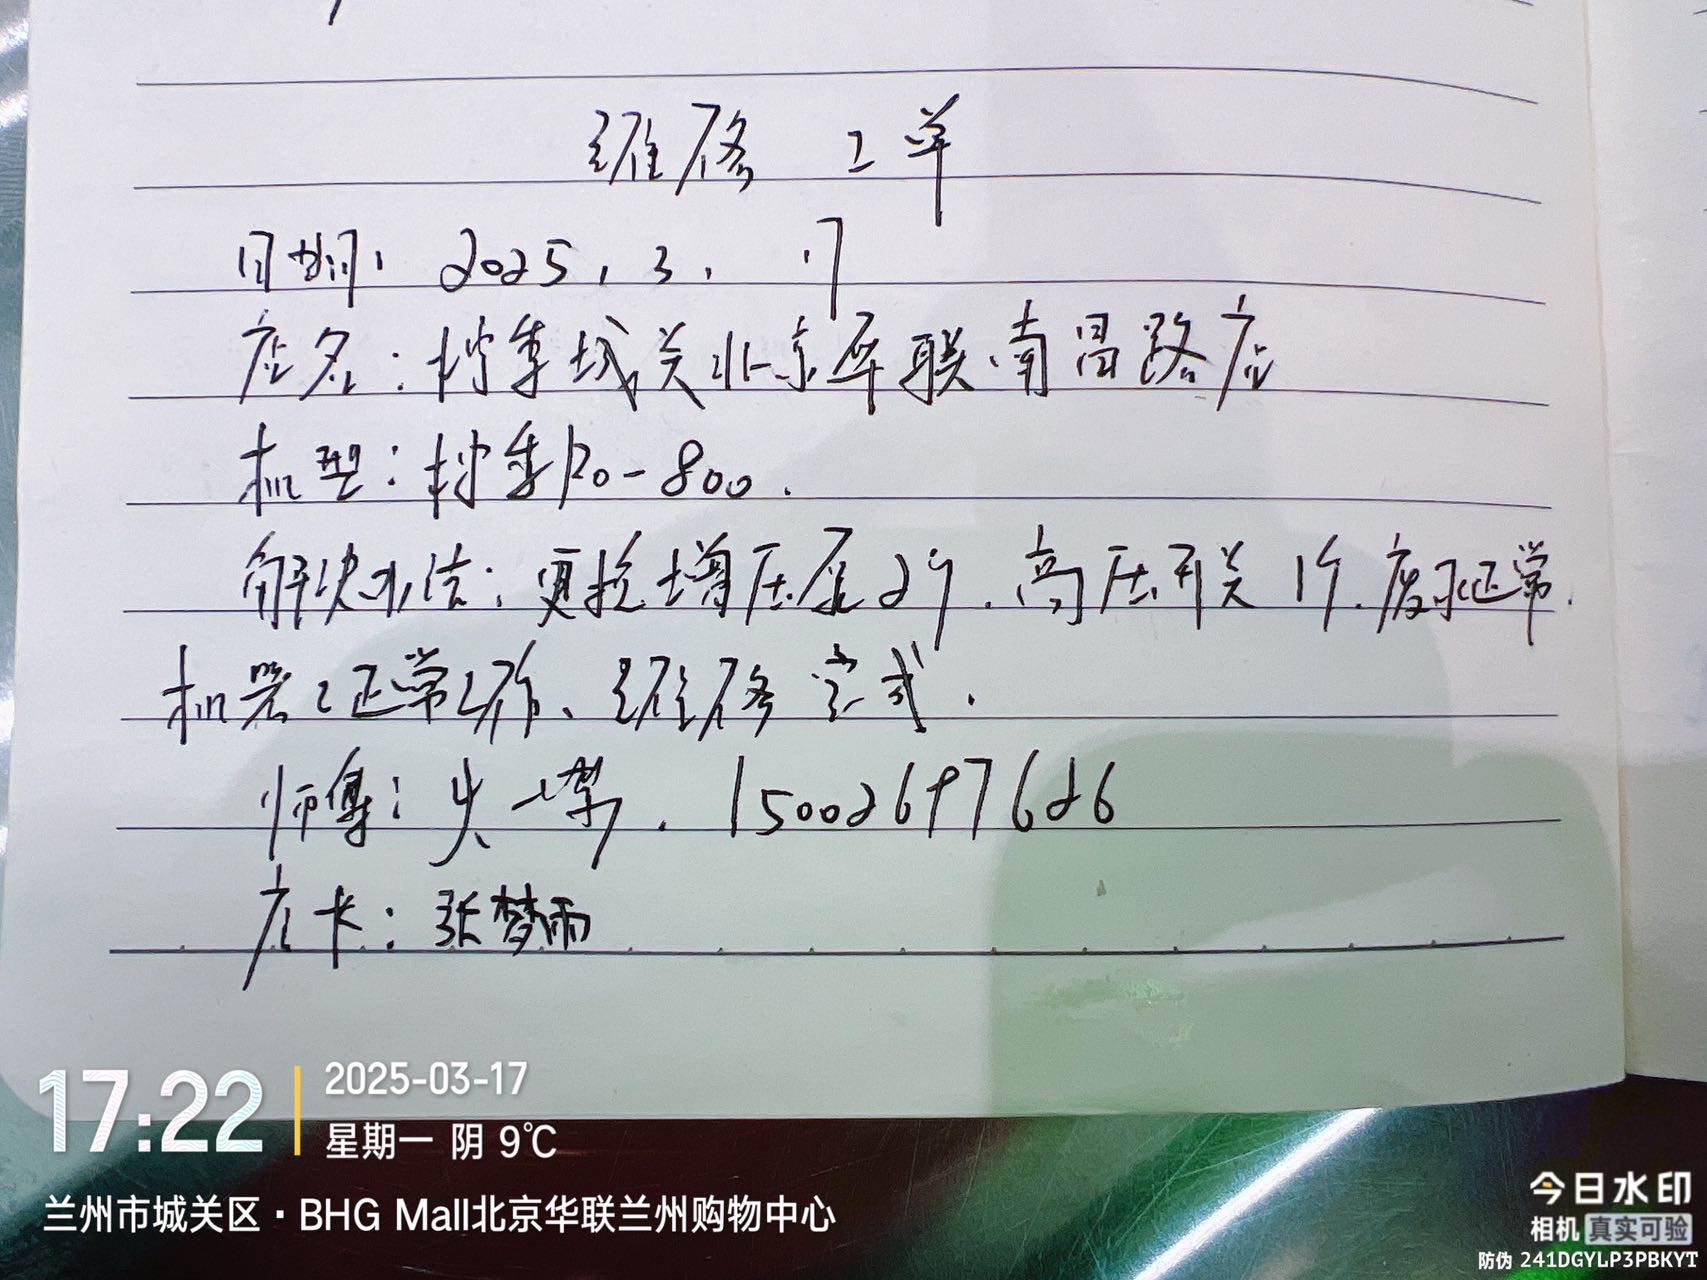 维修 工单
日期: 2025. 3. 17
店名: 档季城关北京华联南昌路店
机型: 档季RO-800.
解决办法: 更换增压泵2个. 高压开关1个. 废水正常.
机器正常工作、维修完成.
师傅: 15002697626
店长: 张梦雨
17:22
2025-03-17
星期一 阴 9℃
兰州市城关区·BHG Mall北京华联兰州购物中心
今日水印
相机 真实可验
防伪 241DGYLP3PBKYT